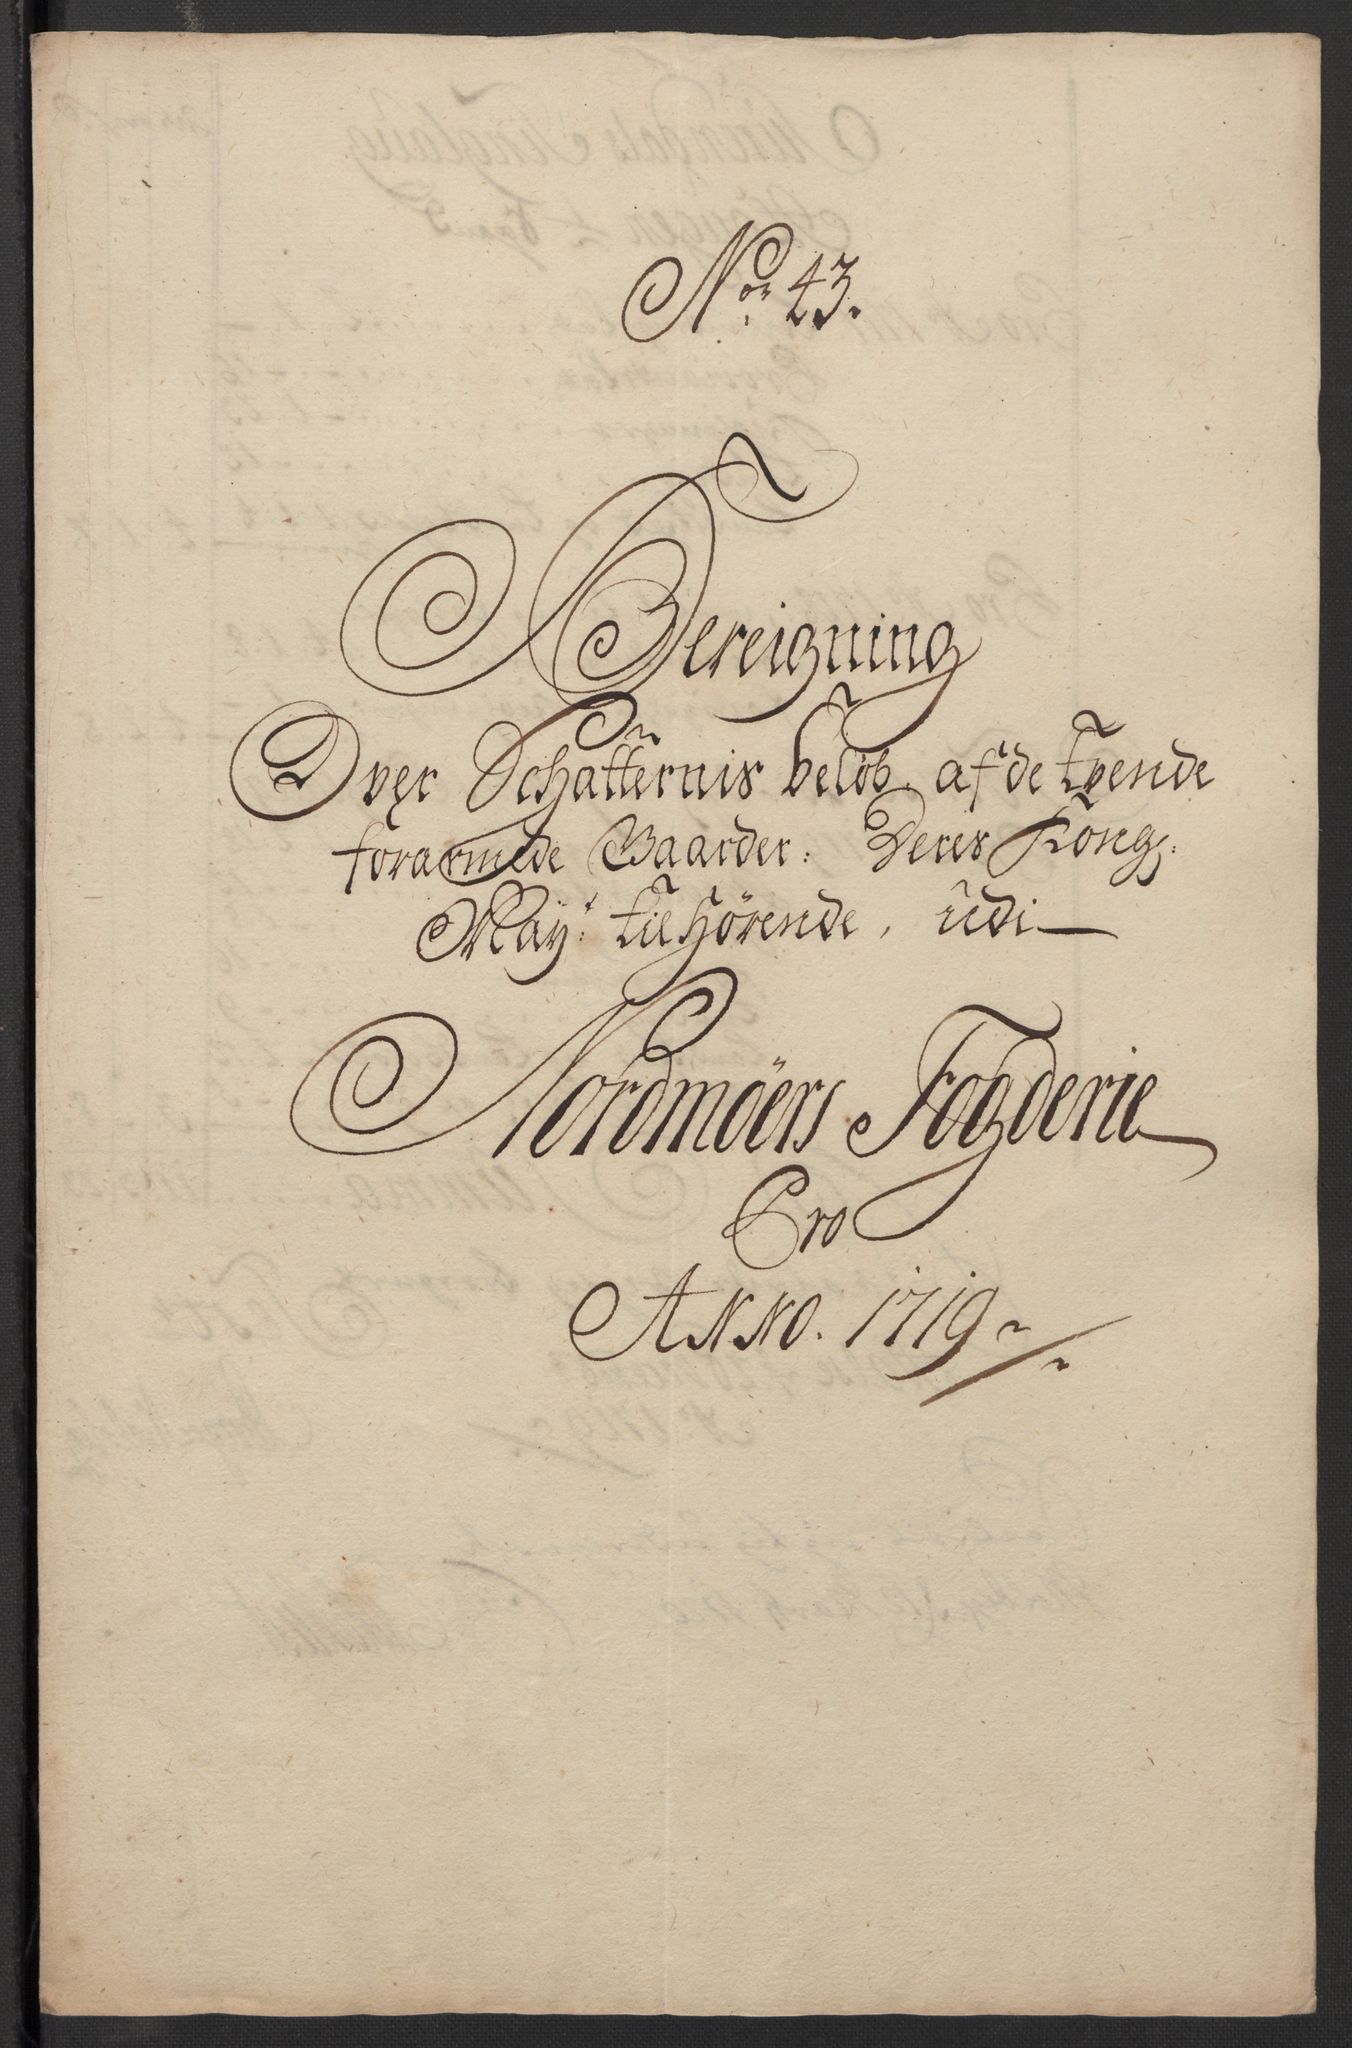 No: 43.
Bereigning
Over Schatternis beløb, af de tvende
forarmede Gaarder. Deres Kong:
May:t tilhørende, udi
Nordmöers Fogderie
Pro
Anno. 1719